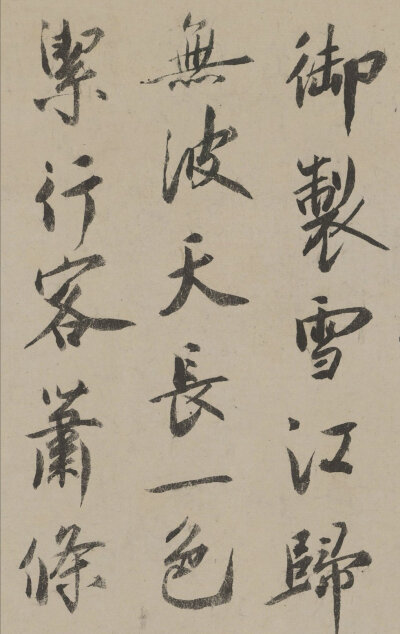 御製雪江歸
無波天長一色
絜行客蕭條